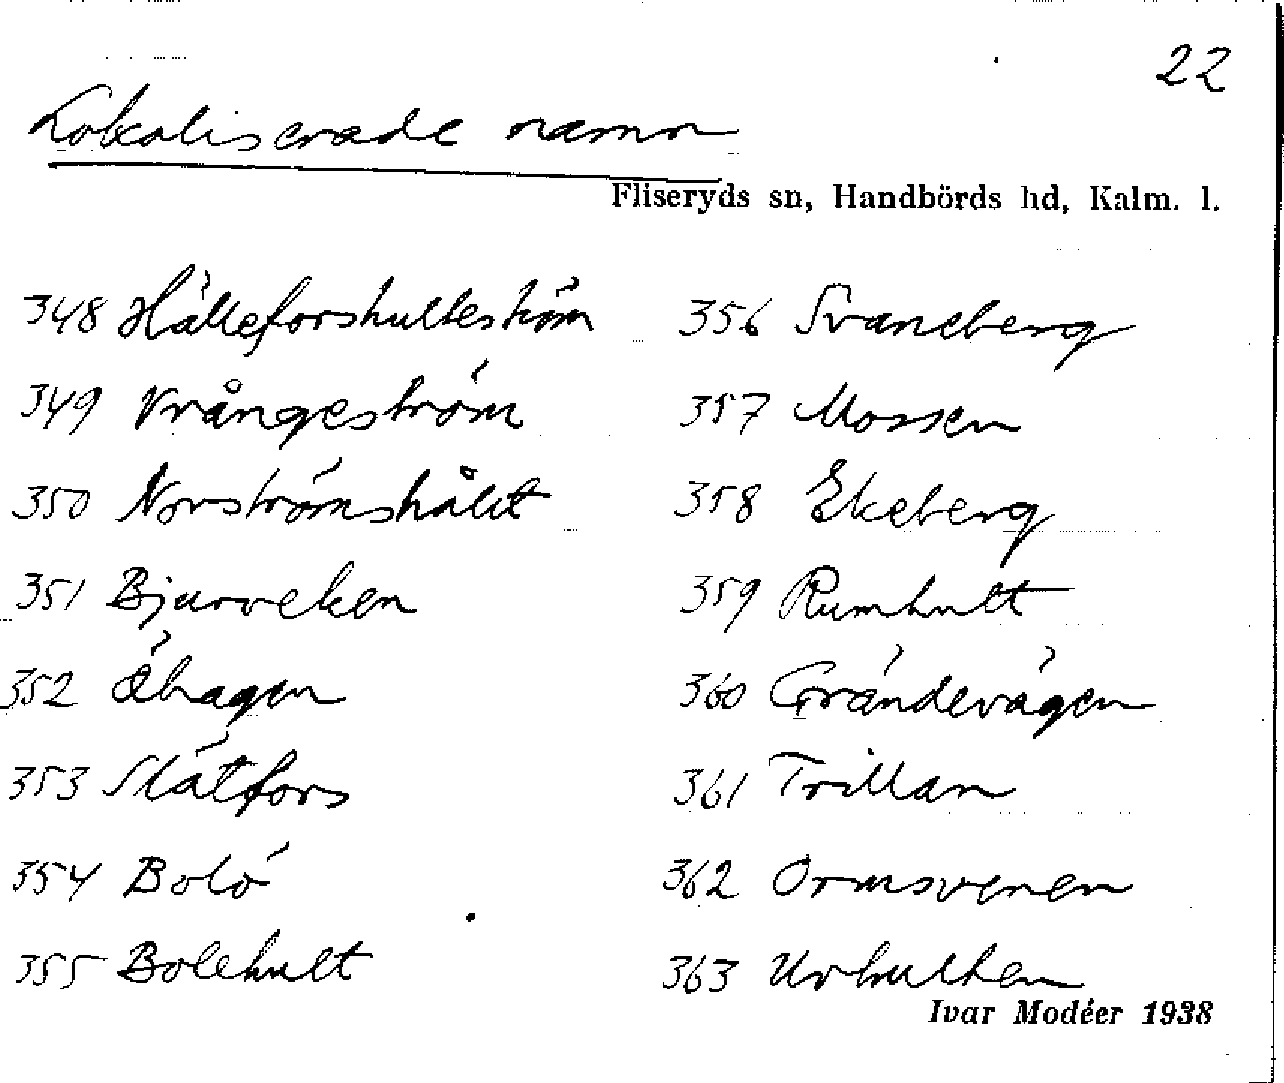 22
Lokaliserade namn
Fliseryds sn, Handbörds hd, Kalm. l.
348 Hälleforshulteström
349 Vrångeström
350 Norströmshålet
351 Bjurveken
352 Öhagen
353 Slätfors
354 Bolö
355 Bolehult
356 Svaneberg
357 Mossen
358 Ekeberg
359 Rumhult
360 Grändevägen
361 Trillan
362 Ormsvenen
363 Urhulten
Ivar Modéer 1938